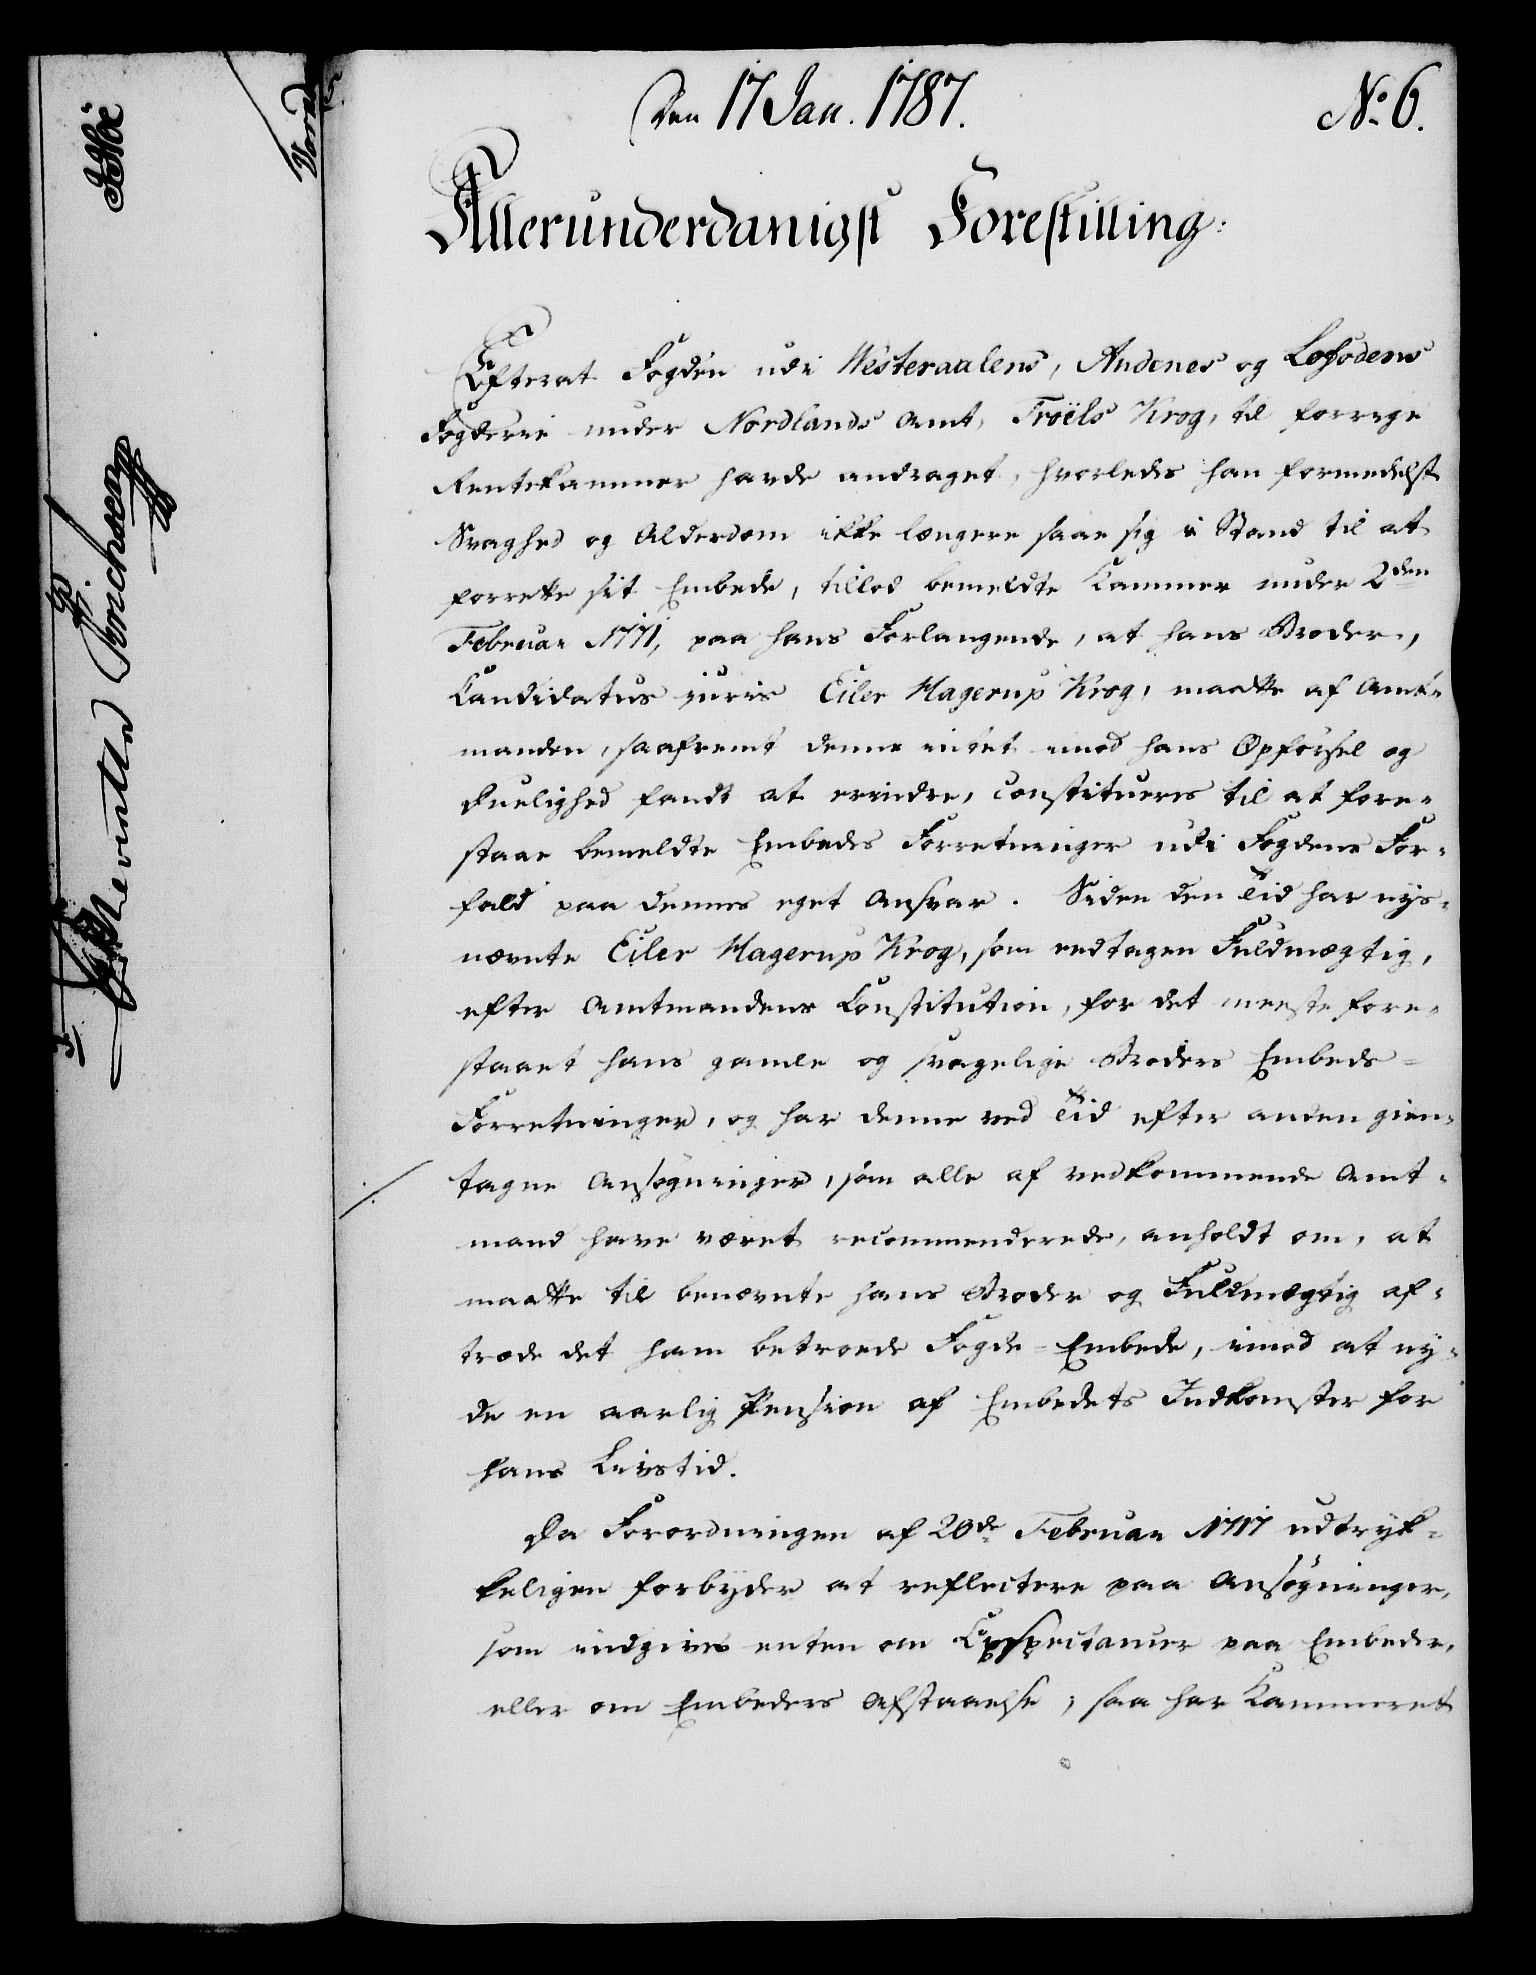 Den 17 Jan. 1787.
No. 6.
Allerunderdanigst Forestilling.
Efterat Fogden udi Westeraalens, Andenes og Lofodens
Fogderie under Nordlands Amt, Troëls Krog, til forrige
Rentekammer havde andraget, hvorledes han formedelst
Svaghed og Alderdom ikke længere saae sig i Stand til at
forrette sit Embede, tillod bemeldte Kammer under 2den
Februar 1771, paa hans Forlangende, at hans Broder,
Candidatus juris Eiler Hagerup Krog, maatte af Amt-
manden, saafremt denne intet imod hans Opførsel og
Duelighed fandt at erindre, constitueres til at fore-
staae bemeldte Embeds Forretninger udi Fogdens For-
fald paa dennes eget Ansvar. Siden den Tid har nys-
nævnte Eiler Hagerup Krog, som eedtagen Fuldmægtig,
efter Amtmandens Constitution, for det meeste fore-
staaet hans gamle og svagelige Broders Embeds-
Forretninger, og har denne ved Tid efter anden gien-
tagne Ansøgninger, som alle af vedkommende Amt-
mand have været recommenderede, anholdt om, at
maatte til benævnte hans Broder og Fuldmægtig af-
træde det ham betroede Fogde-Embede, imod at ny-
de en aarlig Pension af Embedets Indkomster for
hans Livstid.
Da Forordningen af 20de Februar 1717 udtryk-
keligen forbyder at reflectere paa Ansøgninger,
som indgives enten om Exspectancer paa Embeder,
eller om Embeders Afstaaelse; saa har Kammeret